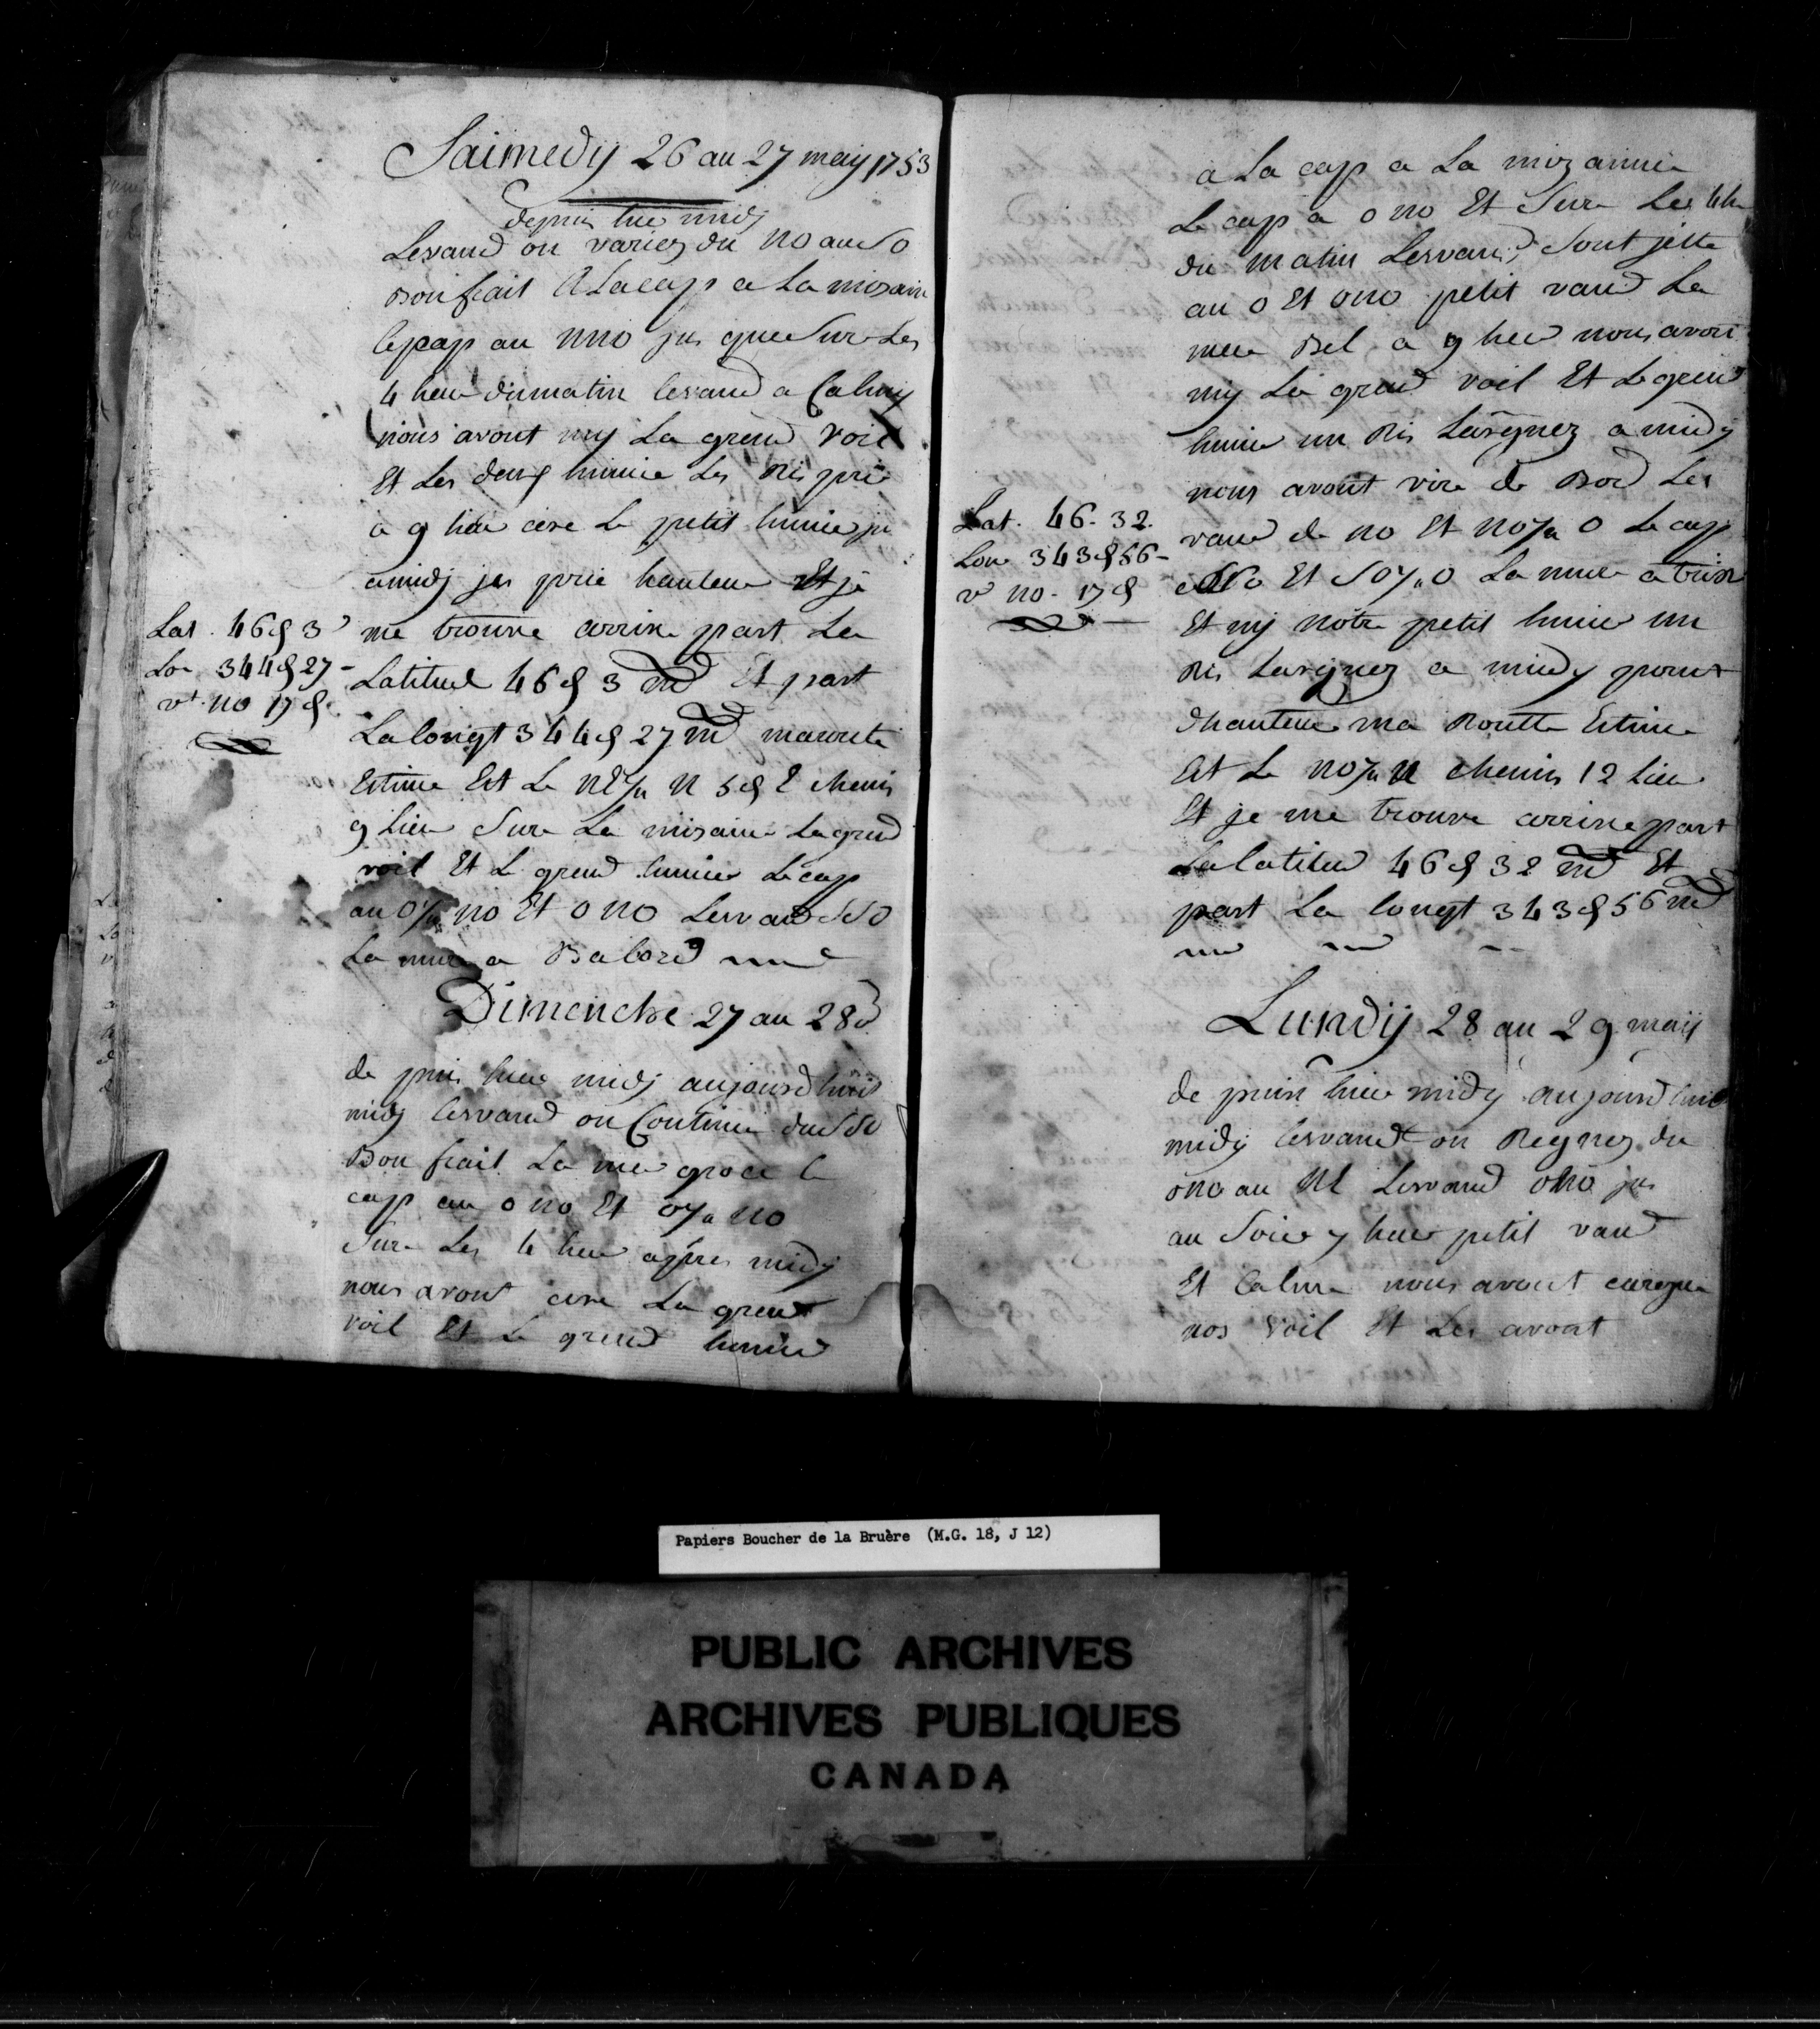 Saimedy 26 au 27 maij 1753
depuis hie midj
Levand on variez du no au so
Bon frait A La cap a La misain
le cap au nno jus que Sur Les
4 heur du matin levand a Calmy
nous avont my La grend voil
Et Les deux hunié Les Ris prie
a 9 heu cere Le petit hunie
amidj jes prie hauteur Et je
me trouve arrive part La
Latitud 46 d 3 m Et part
La longt 344 d 27 m maroute
Estime Est Le n 5 d E chemis
9 Lieu Sure La misaine La grend
voil Et L grend hunier Le cap
au o no Et ono Lervand SSO
La mure a Babord
Lat. 46 d 3
Lon 344 d 27 -
vt. no 17 d.
Dimenche 27 au 28
de puis hier midj aujourdhuis
midj lesvand on Continué du SSO
Bon frait La mer groce le
cap au ono Et o no
Sur Les 4 heu apres midj
nous avont cere La grend
voil Et Le grend hunier
a La cap a La mizainne
Le cap a ono Et Sure Les 4 he
du matin Lesvand Sont jette
au o Et ono petit vand La
mere Bel a 9 heu nous avont
my La grend voil Et Le grend
hunie un Ris Largnez a midy
nous avont vire de Bord Les
vand de no Et no o Le cap
Et So o La mure a tribor
Et my notre petit hunier un
Ris Largnez a midy point
dhauteur ma Routte Estime
Est Le no n chemis 12 Lieu
Et je me trouve arrive part
La latitud 46 d 32 m Et
part La longt 343 d 56 m
Lat. 46 - 32.
Lon 343 d 56 -
v no - 17 d
Lundij 28 au 29 maij
de puis hier midy aujourdhuis
midy lesvand on Regnez du
ono au Lesvand ono jus
au Soire 7 heur petit vand
Et Calme nous avont cargue
nos voil Et Les avont
Papiers Boucher de la Bruère (M.G. 18, J 12)
PUBLIC ARCHIVES
ARCHIVES PUBLIQUES
CANADA